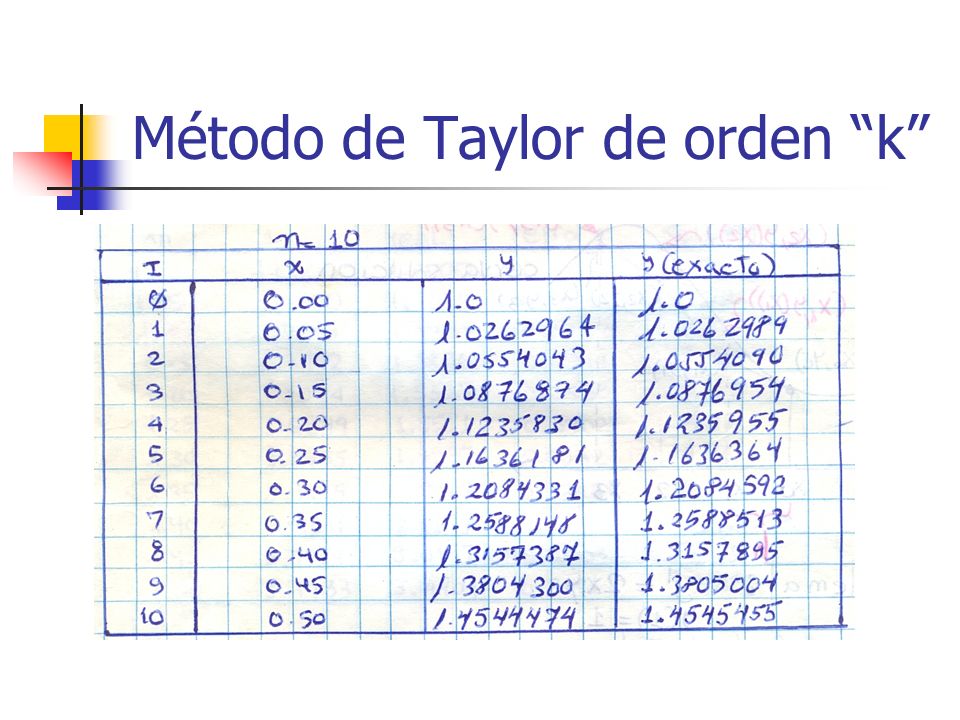 Método de Taylor de orden “k”
n= 10
I x y y (exacto)
0 0.00 1.0 1.0
1 0.05 1.0262964 1.0262989
2 0.10 1.0554043 1.0554090
3 0.15 1.0876874 1.0876954
4 0.20 1.1235830 1.1235955
5 0.25 1.1636181 1.1636364
6 0.30 1.2084331 1.2084592
7 0.35 1.2588148 1.2588513
8 0.40 1.3157387 1.3157895
9 0.45 1.3804300 1.3805004
10 0.50 1.4544474 1.4545455